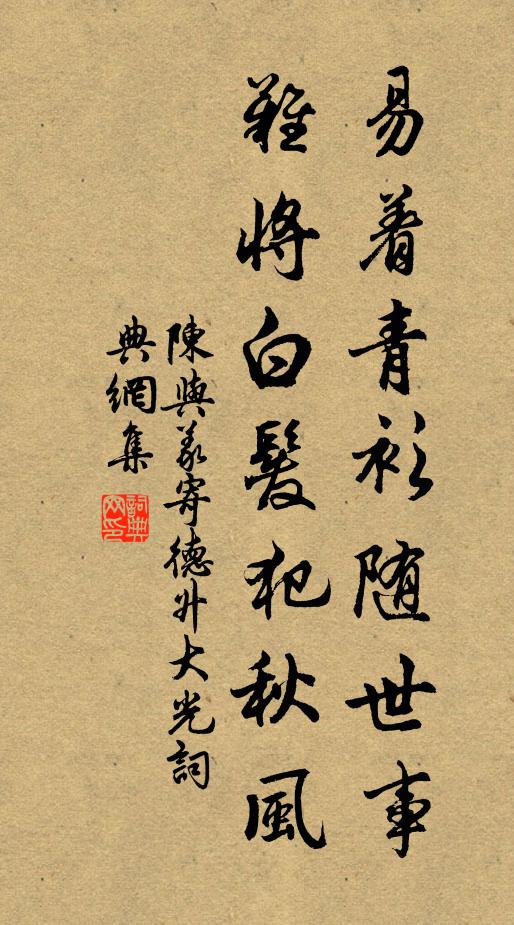 易着青衫随世事
難將白髮犯秋風
陳與義寄德升大光詞
典網集
詞典網印